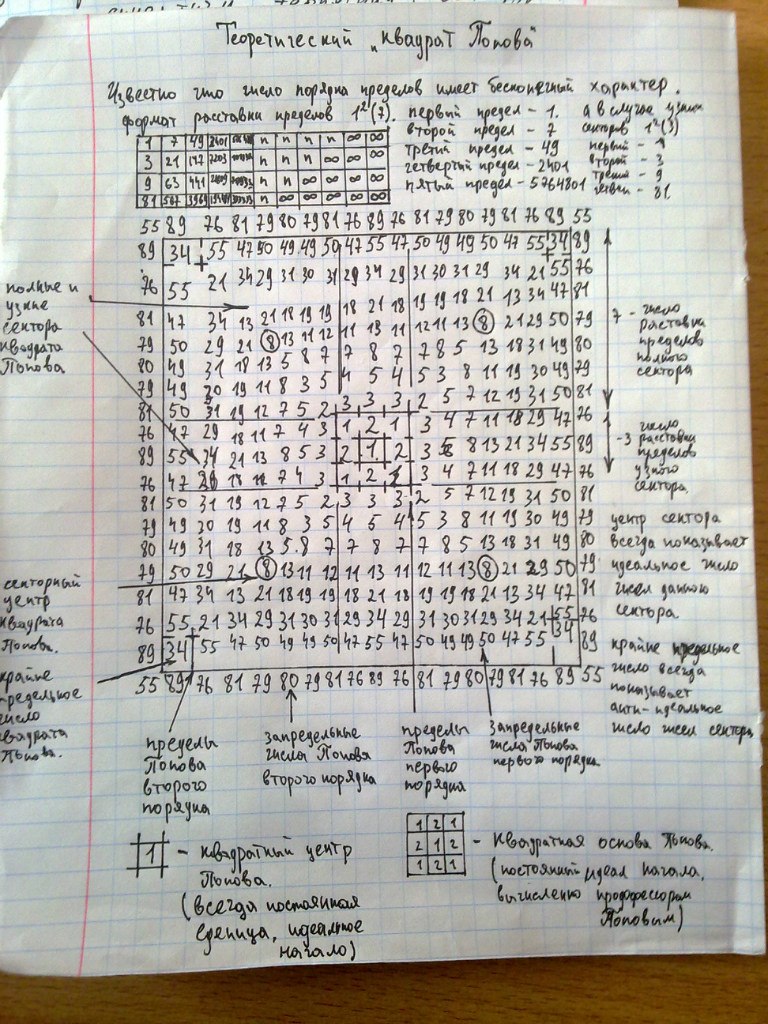 Теоретический „квадрат Попова"
Известно что число порядка пределов имеет бесконечный характер.
формат расставки пределов 1²(7).
первый предел - 1.
второй предел - 7
третий предел - 49
четвертый предел - 2401
пятый предел - 5764801
а в случае узких
секторов 1²(3)
первый - 1
второй - 3
третий - 9
четвёт. - 81
1 7 49 2401 n n n ∞ ∞
3 21 147 7203 n n n ∞ ∞
9 63 441 n ∞ ∞ ∞ ∞
81 567 3969 ∞ ∞ ∞ ∞ ∞
55 89 76 81 79 80 79 81 76 89 76 81 79 80 79 81 76 89 55
89 34 55 47 50 49 49 50 47 55 47 50 49 49 50 47 55 34 89
76 55 21 34 29 31 30 31 29 34 29 31 30 31 29 34 21 55 76
81 47 34 13 21 18 19 19 18 21 18 19 19 18 21 13 34 47 81
79 50 29 21 8 13 11 12 11 13 11 12 11 13 8 21 29 50 79
80 49 31 18 13 5 8 7 7 8 7 7 8 5 13 18 31 49 80
79 49 30 19 11 8 3 5 4 5 4 5 3 8 11 19 30 49 79
81 50 31 19 12 7 5 2 3 3 3 2 5 7 12 19 31 50 81
76 47 29 18 11 7 4 3 1 2 1 3 4 7 11 18 29 47 76
89 55 34 21 13 8 5 3 2 1 2 3 5 8 13 21 34 55 89
76 47 29 18 11 7 4 3 1 2 1 3 4 7 11 18 29 47 76
81 50 31 19 12 7 5 2 3 3 3 2 5 7 12 19 31 50 81
79 49 30 19 11 8 3 5 4 5 4 5 3 8 11 19 30 49 79
80 49 31 18 13 5 8 7 7 8 7 7 8 5 13 18 31 49 80
79 50 29 21 8 13 11 12 11 13 11 12 11 13 8 21 29 50 79
81 47 34 13 21 18 19 19 18 21 18 19 19 18 21 13 34 47 81
76 55 21 34 29 31 30 31 29 34 29 31 30 31 29 34 21 55 76
89 34 55 47 50 49 49 50 47 55 47 50 49 49 50 47 55 34 89
55 89 76 81 79 80 79 81 76 89 76 81 79 80 79 81 76 89 55
полные и
узкие
сектора
квадрата
Попова
секторный
центр
квадрата
Попова.
крайне
предельное
число
квадрата
Попова.
7 - число
расставки
пределов
полного
сектора
-3 число
расставки
пределов
узкого
сектора.
центр сектора
всегда показывает
идеальное число
чисел данного
сектора.
крайне предельное
число всегда
показывает
анти-идеальное
число чисел сектора
пределы
Попова
второго
порядка
запредельные
числа Попова
второго порядка
пределы
Попова
первого
порядка
запредельные
числа Попова
первого порядка.
1 - квадратный центр
Попова.
(всегда постоянная
еденица, идеальное
начало)
1 2 1
2 1 2
1 2 1
- квадратная основа Попова.
(постоянный идеал начала,
вычисленно
Поповым)